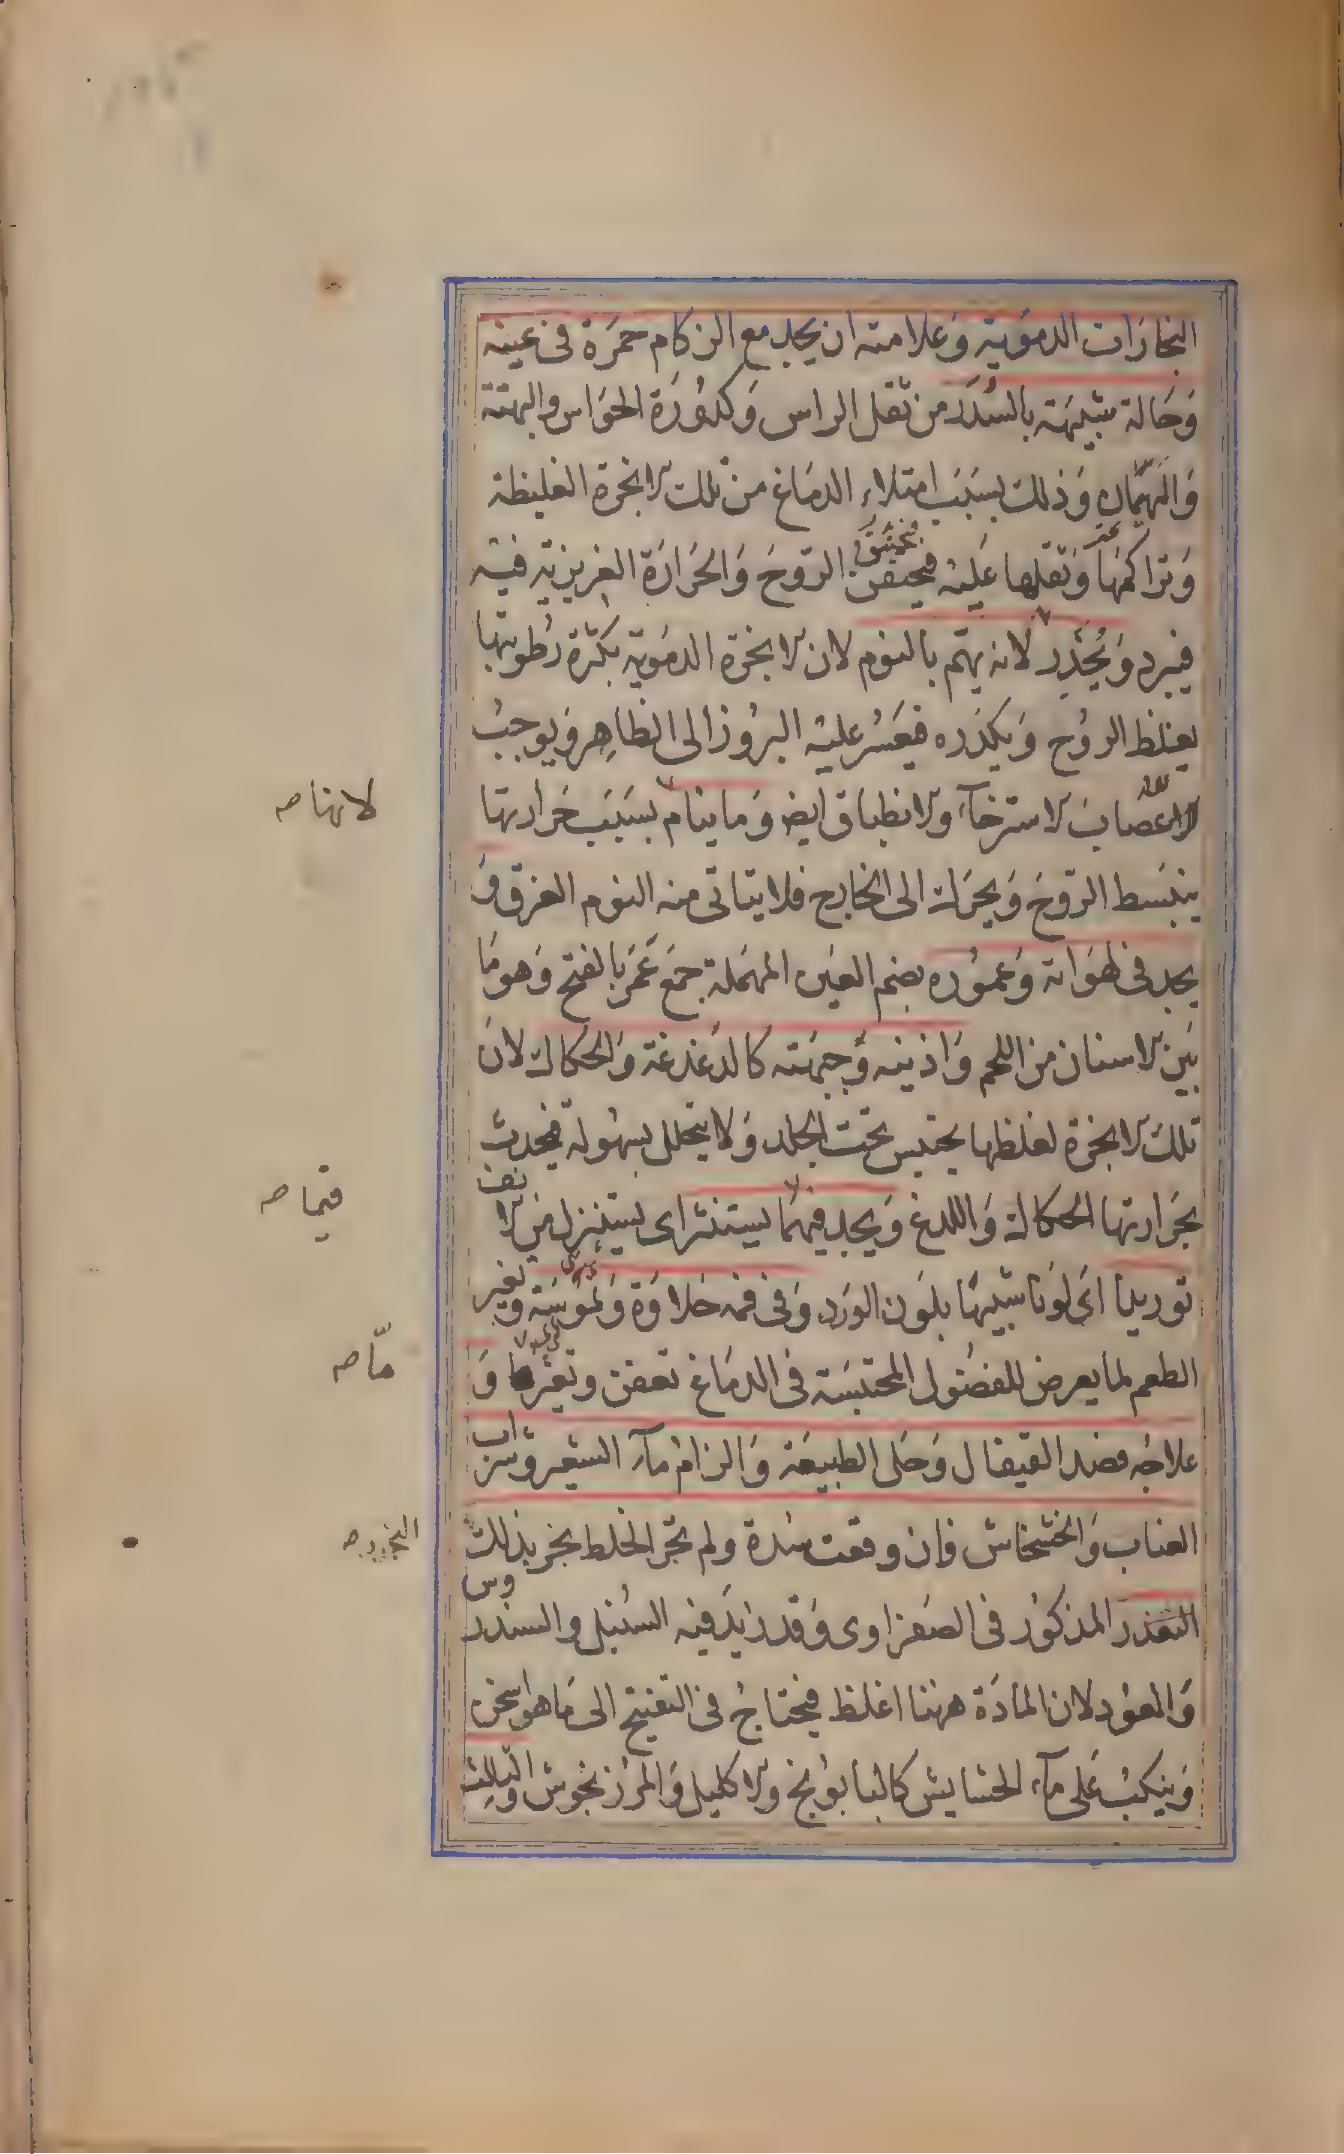 البخارات الدموية وعلامته ان يجد مع الزكام حمرة فى عينيه
وَحَالة شبيهَة بالسُّدَر من ثقل الراس وَكدُورَة الحوَاس والبهتة
وَ وَذلك بسَبَب امتلاء الدمَاغ من تلك الابخرة الغليظة
وَتراكمهَا وَثقلها عَليْه فيختنق الرّوحَ وَالحَرَارَة الغريزية فيه
فيبرد وَيُخَدِّر لانه يهتم بالنوم لان الابخرة الدموَية بكثرة رطوبتها
يغلظ الروُح وَيكدَره فيعَسُر عليْه البرُوز الى الظاهِر وَيوجبُ
الاعصَابَ الاسترخآءَ والانطباق ايضا وَما ينام بسَبَب حَرارتها
ينبَسط الرّوحَ وَيحرَك الى الخارج فلا يتاتى منه النوم الغرق وَ
يجد فى لهوَاته وَعموُره بضم العَين المهمَلة جمَع عَمْر بالفتح وَهومَا
بَين الاسنان من اللحم وَاذنيه وَجبهَته كالدغدغة وَالحكاك لانَ
تلك الابخرة لغلظها يحتبس تحت الجلد وَلا يتحلل بسهُولة فيحدث
بحَرارتها الحكاك وَاللدغ وَيجد فيهمَا يستنثر اى يستنزل من الانف
توريدا اىَ لوَنا شبيهًا بلوَن الورَد وَفى فمه حَلاوَة وَ وتغير
الطعم لما يعرض للفضُول المحتبسَة فى الدمَاغ تعفن وتغير مَا وَ
علاجُه فصد القيفال وَحَل الطبيعَة وَالزامُ مآء الشعير وشراب
العناب وَالخشخاش فان وقعت سُدة ولم تجر الخلط بخر بذلك
المذكوُر فى الصَفراوى وَقد زيَد فيه السُنبل والسندروس
وَالعوُد لان المادَة ههنا اغلظ فيحتاجُ فى التفتيح الى مَا هواسخن
وَينكبُ عَلى مآء الحشايش كالبابوُنج والاكليل وَالمرزنجوش والثالث
يختنق
لانها صه
فيما صه
مّا صه
البخور صه